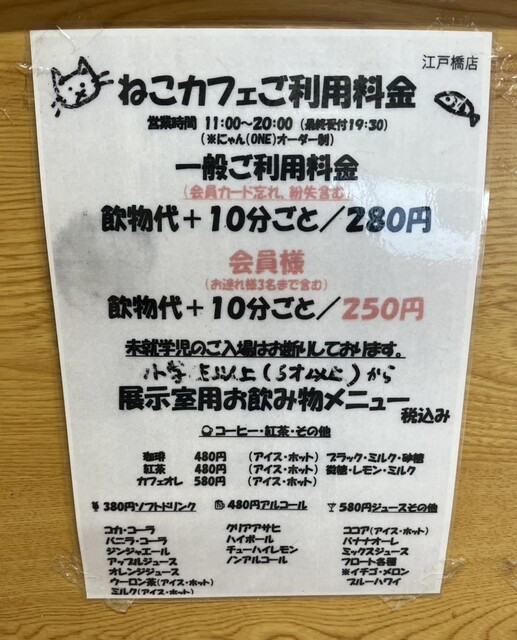 江戸橋店
ねこカフェご利用料金
営業時間 11:00~20:00 (最終受付19:30)
(※にゃん(ONE)オーダー制)
一般ご利用料金
(会員カード忘れ、紛失含む)
飲物代+10分ごと/280円
会員様
(お連れ様3名まで含む)
飲物代+10分ごと/250円
未就学児のご入場はお断りしております。
小学生以上(5才以上)から
展示室用お飲み物メニュー
税込み
コーヒー・紅茶・その他
珈琲 480円 (アイス・ホット) ブラック・ミルク・砂糖
紅茶 480円 (アイス・ホット) 微糖・レモン・ミルク
カフェオレ 580円 (アイス・ホット)
380円ソフトドリンク
コカ・コーラ
バニラ・コーラ
ジンジャエール
アップルジュース
オレンジジュース
ウーロン茶(アイス・ホット)
ミルク(アイス・ホット)
480円アルコール
クリアアサヒ
ハイボール
チューハイレモン
ノンアルコール
580円ジュースその他
ココア(アイス・ホット)
バナナオーレ
ミックスジュース
フロート各種
※イチゴ・メロン
ブルーハワイ